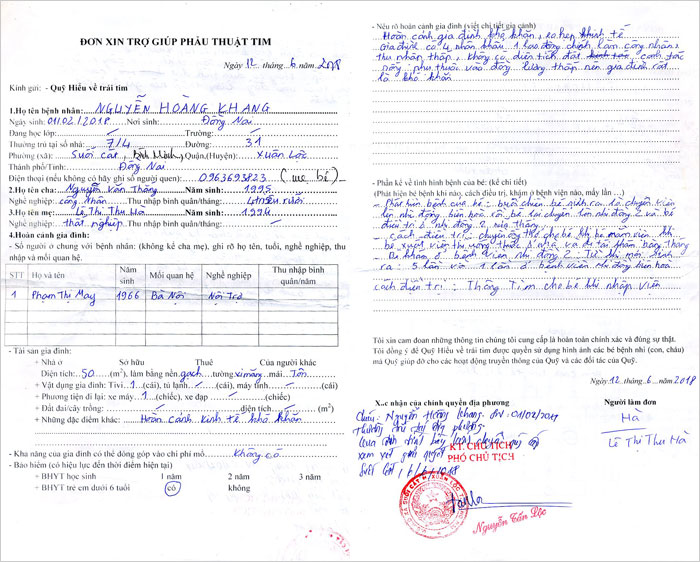 ĐƠN XIN TRỢ GIÚP PHẪU THUẬT TIM
Ngày 12 tháng 6 năm 2018
Kính gửi: - Quỹ Hiểu về trái tim
1.Họ tên bệnh nhân: NGUYỄN HOÀNG KHANG
Ngày sinh: 01/02/2018 Nơi sinh: Đồng Nai
Đang học lớp: Trường:
Thường trú tại số nhà: 7/4 Đường: 31
Phường (xã): Suối Cát, Quận.(Huyện): Xuân Lộc
Thành phố/Tỉnh: Đồng Nai
Điện thoại (nếu không có hãy ghi số người quen): 0963693823 (mẹ bé)
2.Họ tên cha: Nguyễn Văn Thăng Năm sinh: 1995
Nghề nghiệp: công nhân Thu nhập bình quân/tháng: 4 triệu rưỡi
3.Họ tên mẹ: Lê Thị Thu Hà Năm sinh: 1994
Nghề nghiệp: thất nghiệp Thu nhập bình quân/tháng:
4.Hoàn cảnh gia đình:
- Số người ở chung với bệnh nhân: (không kể cha mẹ), ghi rõ họ tên, tuổi, nghề nghiệp, thu nhập và mối quan hệ.
STT Họ và tên Năm sinh Mối quan hệ Nghề nghiệp Thu nhập bình quân/năm
1 Phạm Thị May 1966 Bà Nội Nội Trợ
- Tài sản gia đình:
+ Nhà ở Sở hữu Thuê Của người khác
Diện tích: 50 (m²), làm bằng nền gạch tường xi măng mái Tôn
+ Vật dụng gia đình: Tivi. 1 (cái), tủ lạnh (cái), máy tính (cái)
+ Phương tiện đi lại: xe máy 1 (chiếc), xe đạp (chiếc)
+ Đất đai/cây trồng: diện tích (m²)
+ Những đặc điểm khác: Hoàn cảnh kinh tế khó khăn
- Khả năng của gia đình có thể đóng góp vào chi phí mổ: Không có
- Bảo hiểm (có hiệu lực đến thời điểm hiện tại)
+ BHYT học sinh 1 năm 2 năm 3 năm
+ BHYT trẻ em dưới 6 tuổi có không
- Nêu rõ hoàn cảnh gia đình (viết chi tiết gia cảnh)
Hoàn cảnh gia đình khó khăn, eo hẹp kinh tế
gia đình có 4 nhân khẩu 1 lao động chính làm công nhân,
thu nhập thấp, không có diện tích đất canh tác
phụ thuộc vào đồng lương thấp nên gia đình rất
là khó khăn
- Phần kể về tình hình bệnh của bé: (kể chi tiết)
(Phát hiện bệnh khi nào, cách điều trị, khám ở bệnh viện nào, mấy lần …)
- Phát hiện bệnh của bé:
điều trị ở nhi đồng 2
- cách điều trị:
bé xuất viện thì uống thuốc ở nhà và đi tái khám hàng tháng
- Đi khám ở bệnh viện nhi đồng 2. Từ khi mới sinh
ra: 5 lần và 1 lần ở bệnh viện nhi đồng biên hòa
cách điều trị: Thông Tim cho bé khi nhập viện
Tôi xin cam đoan những thông tin chúng tôi cung cấp là hoàn toàn chính xác và đúng sự thật.
Tôi đồng ý để Quỹ Hiểu về trái tim được quyền sử dụng hình ảnh các bé bệnh nhi (con, cháu)
mà Quỹ giúp đỡ cho các hoạt động truyền thông của Quỹ và các đối tác của Quỹ.
Ngày 12 tháng 6 năm 2018
Xác nhận của chính quyền địa phương
Người làm đơn
Cháu: Nguyễn Hoàng Khang
Thường trú tại địa phương
xem xét giải quyết
KT. CHỦ TỊCH
PHÓ CHỦ TỊCH
Nguyễn Tấn Lộc
Hà
Lê Thị Thu Hà